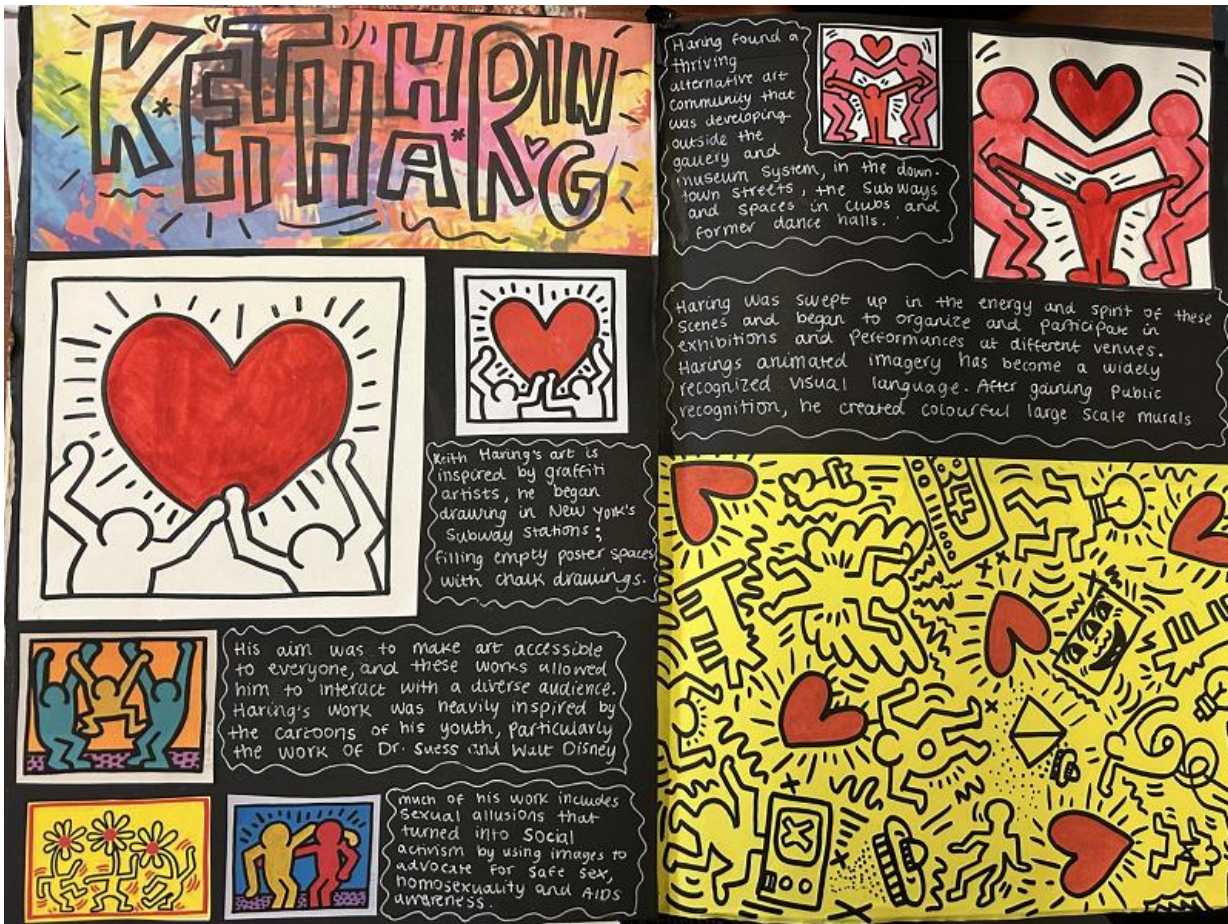 KEITH HARING
Keith Haring's art is
inspired by graffiti
artists, he began
drawing in New York's
Subway stations;
filling empty poster spaces
with chalk drawings.
His aim was to make art accessible
to everyone, and these works allowed
him to interact with a diverse audience.
Haring's work was heavily inspired by
the cartoons of his youth, particularly
the work of Dr. Suess and Walt Disney
much of his work includes
sexual allusions that
turned into social
activism by using images to
advocate for safe sex,
homosexuality and AIDS
awareness.
Haring found a
thriving
alternative art
community that
was developing
outside the
gallery and
museum system, in the down-
town streets, the subways
and spaces in clubs and
former dance halls.
Haring was swept up in the energy and spirit of these
scenes and began to organize and participate in
exhibitions and performances at different venues.
Harings animated imagery has become a widely
recognized visual language. After gaining public
recognition, he created colourful large scale murals